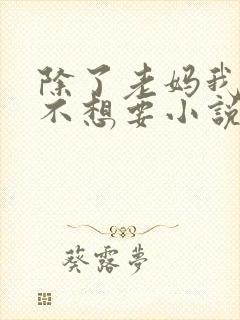 除了老妈我
不想要小说
葵露梦